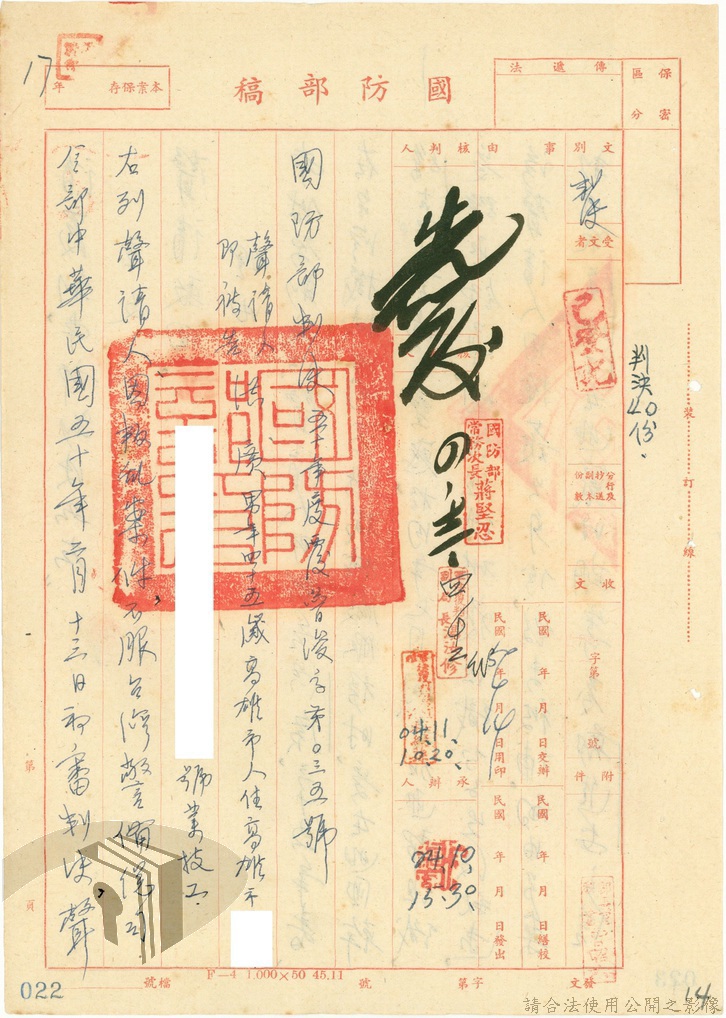 保密區分
傳遞法
國防部稿
本案保存 年
17
文別
判決
受文者
事由
核判人
判決40份
國防部常務次長蔣堅忍
分行及抄送副本份數
收文
字第 號
附件
民國 年 月 日交辦
民國 年 月 日繕校
民國 年 月 日發出
民國50年4月14日用印
承辦人
04.11.
10.20.
04.10.
15.30.
裝 訂 線
國防部判決 五十年度覆普浚字第〇三五號
聲請人
即被告
洪廣 男 年四十五歲 高雄市人 住高雄市
號 業技工
右列聲請人因叛亂案件,不服台灣警備總司
令部中華民國五十年二月十三日初審判決,聲
第 頁
發文 字第 號
檔號
F-4 1.000×50 45.11
022
14
請合法使用公開之影像